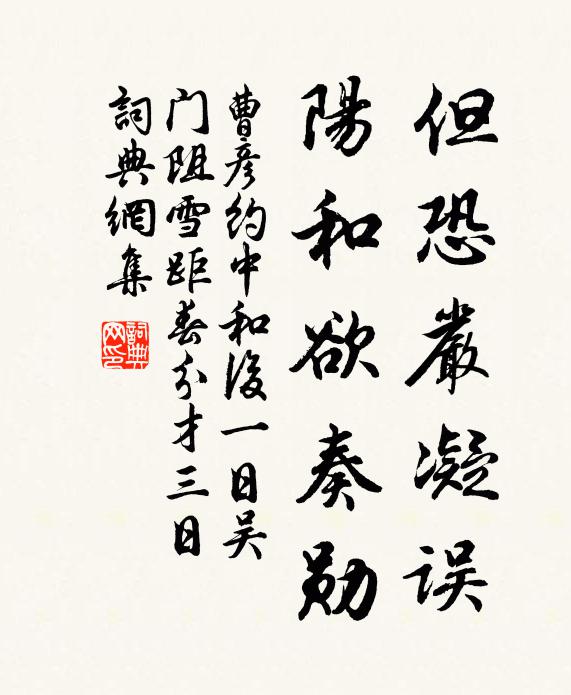 但恐嚴凝误
陽和欲奏勋
曹彦约中和後一日吴
门阻雪距春分才三日
詞典網集
詞典网印